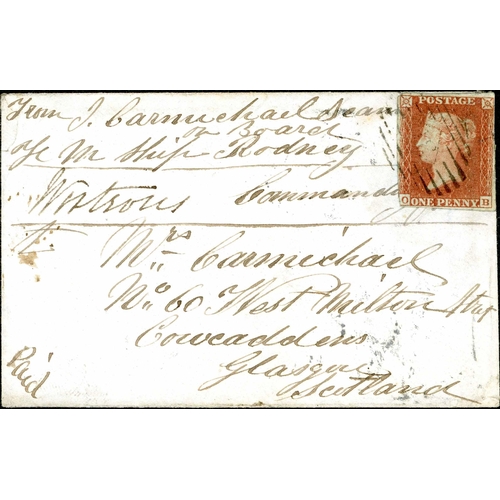 From J. Carmichael Seaman
on Board
of H M Ship Rodney
Commanding
To
Mrs Carmichael
No 60 West Milton Street
Cowcaddens
Glasgow
Scotland
Paid
POSTAGE
O ONE PENNY B